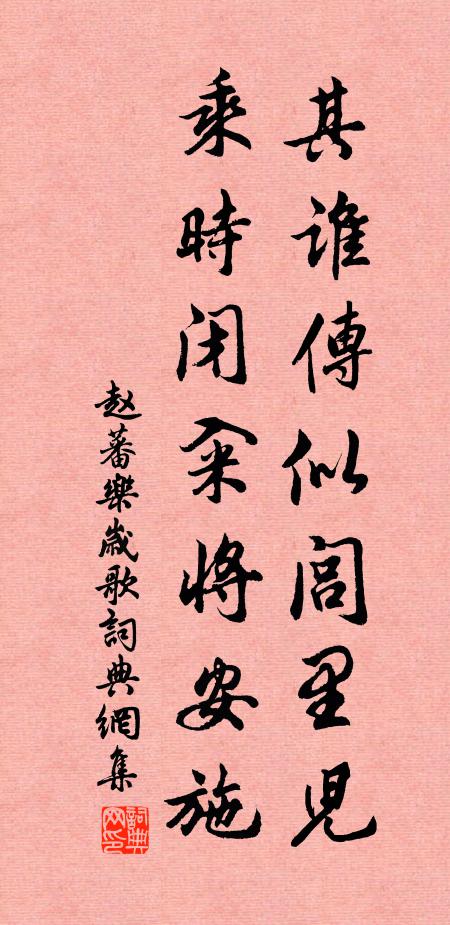 其誰傳似閭里児
乘時闭籴將安施
赵蕃樂歲歌詞典網集
詞典网印